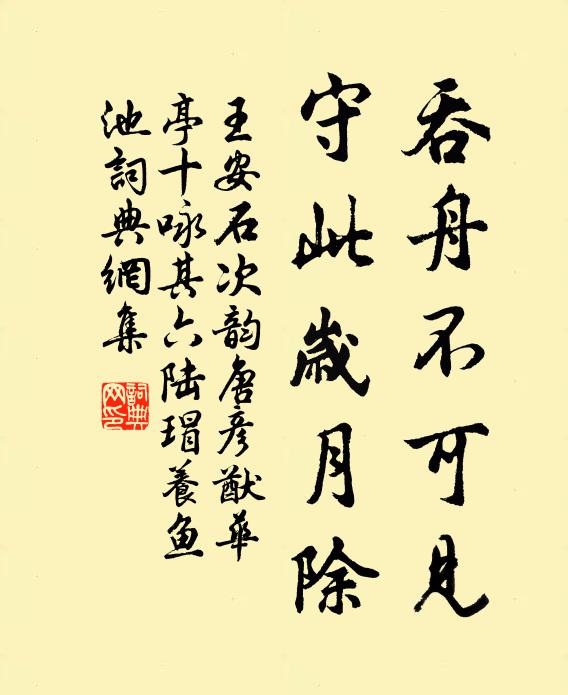 吞舟不可见
守此歲月除
王安石次韵唐彦猷華
亭十咏其六陆瑁養鱼
池詞典網集
詞典
网印